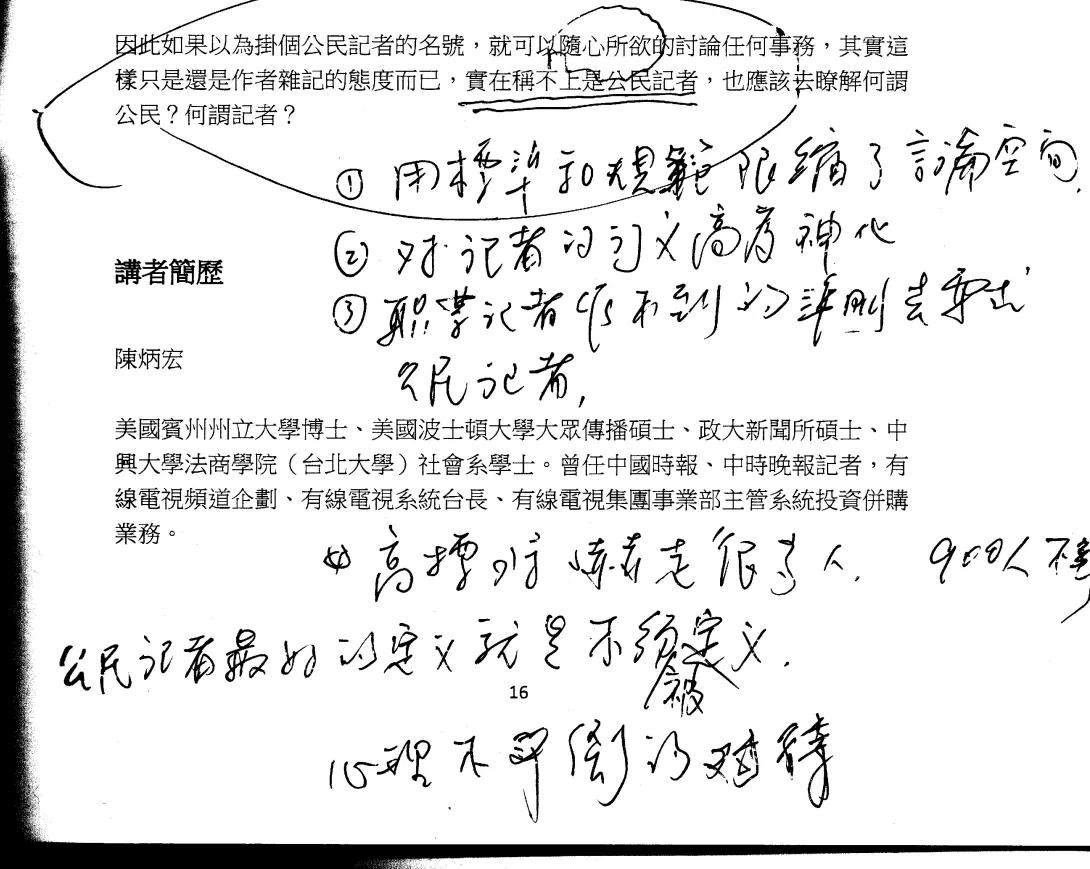 因此如果以為掛個公民記者的名號，就可以隨心所欲的討論任何事務，其實這
樣只是還是作者雜記的態度而已，實在稱不上是公民記者，也應該去瞭解何謂
公民？何謂記者？
① 用標準和規範限縮了言論空间.
② 对記者的定义高度神化
③ 职業记者做不到的準則去要求
公民记者,
講者簡歷
陳炳宏
美國賓州州立大學博士、美國波士頓大學大眾傳播碩士、政大新聞所碩士、中
興大學法商學院（台北大學）社會系學士。曾任中國時報、中時晚報記者，有
線電視頻道企劃、有線電視系統台長、有線電視集團事業部主管系統投資併購
業務。
④ 高標準嚇走很多人. 900人不
公民记者最好的定义就是不須被定义.
16
心理不平衡的